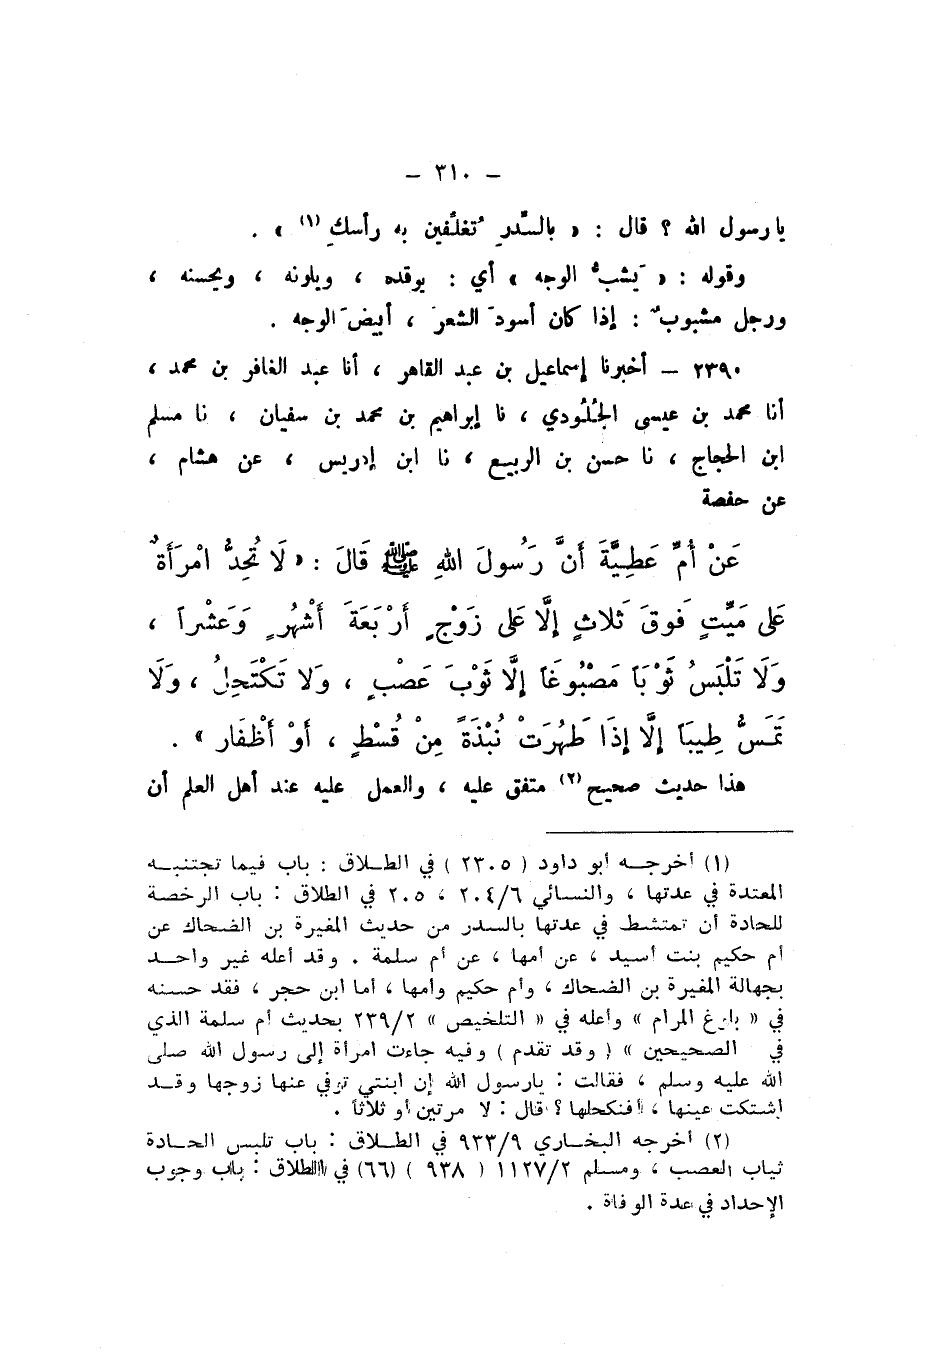 – ٣١٠ –
يا رسول الله ؟ قال : « بالسِّدرِ تُغلِّفين به رأسكِ (١) » .
وقوله : « يَشبُّ الوجه » أي : يوقده ، ويلونه ، ويحسنه ،
ورجل مشبوبٌ : إذا كان أسودَ الشعرَ ، أبيضَ الوجه .
٢٣٩٠ – أخبرنا إسماعيل بن عبد القاهر ، أنا عبد الغافر بن محمد ،
أنا محمد بن عيسى الجُلُودي ، نا إبراهيم بن محمد بن سفيان ، نا مسلم
ابن الحجاج ، نا حسن بن الربيع ، نا ابن إدريس ، عن هشام ،
عن حفصة
عَنْ أُمِّ عَطِيَّةَ أَنَّ رَسُولَ اللهِ ﷺ قَالَ : « لَا تُحِدُّ امْرَأَةٌ
عَلَى مَيِّتٍ فَوقَ ثَلاثٍ إِلَّا عَلَى زَوْجٍ أَرْبَعَةَ أَشْهُرٍ وَعَشْراً ،
وَلَا تَلْبَسُ ثَوْبَاً مَصْبُوغَاً إِلَّا ثَوْبَ عَصْبٍ ، وَلا تَكْتَحِلُ ، وَلَا
تَمَسُّ طِيبَاً إِلَّا إِذَا طَهُرَتْ نُبْذَةً مِنْ قُسْطٍ ، أَوْ أَظْفَار » .
هذا حديث صحيح (٢) متفق عليه ، والعمل عليه عند أهل العلم أن
(١) أخرجه أبو داود ( ٢٣٠٥ ) في الطلاق : باب فيما تجتنبه
المعتدة في عدتها ، والنسائي ٢٠٤/٦ ، ٢٠٥ في الطلاق : باب الرخصة
للحادة أن تمتشط في عدتها بالسدر من حديث المغيرة بن الضحاك عن
أم حكيم بنت أسيد ، عن أمها ، عن أم سلمة . وقد أعله غير واحد
بجهالة المغيرة بن الضحاك ، وأم حكيم وأمها ، أما ابن حجر ، فقد حسنه
في « بلوغ المرام » وأعله في « التلخيص » ٢٣٩/٢ بحديث أم سلمة الذي
في الصحيحين » ( وقد تقدم ) وفيه جاءت امرأة إلى رسول الله صلى
الله عليه وسلم ، فقالت : يارسول الله إن ابنتي توفي عنها زوجها وقد
اشتكت عينها ، أفنكحلها ؟ قال : لا مرتين أو ثلاثاً .
(٢) أخرجه البخاري ٩٣٣/٩ في الطلاق : باب تلبس الحادة
ثياب العصب ، ومسلم ١١٢٧/٢ ( ٩٣٨ ) (٦٦) في الطلاق : باب وجوب
الإحداد في عدة الوفاة .